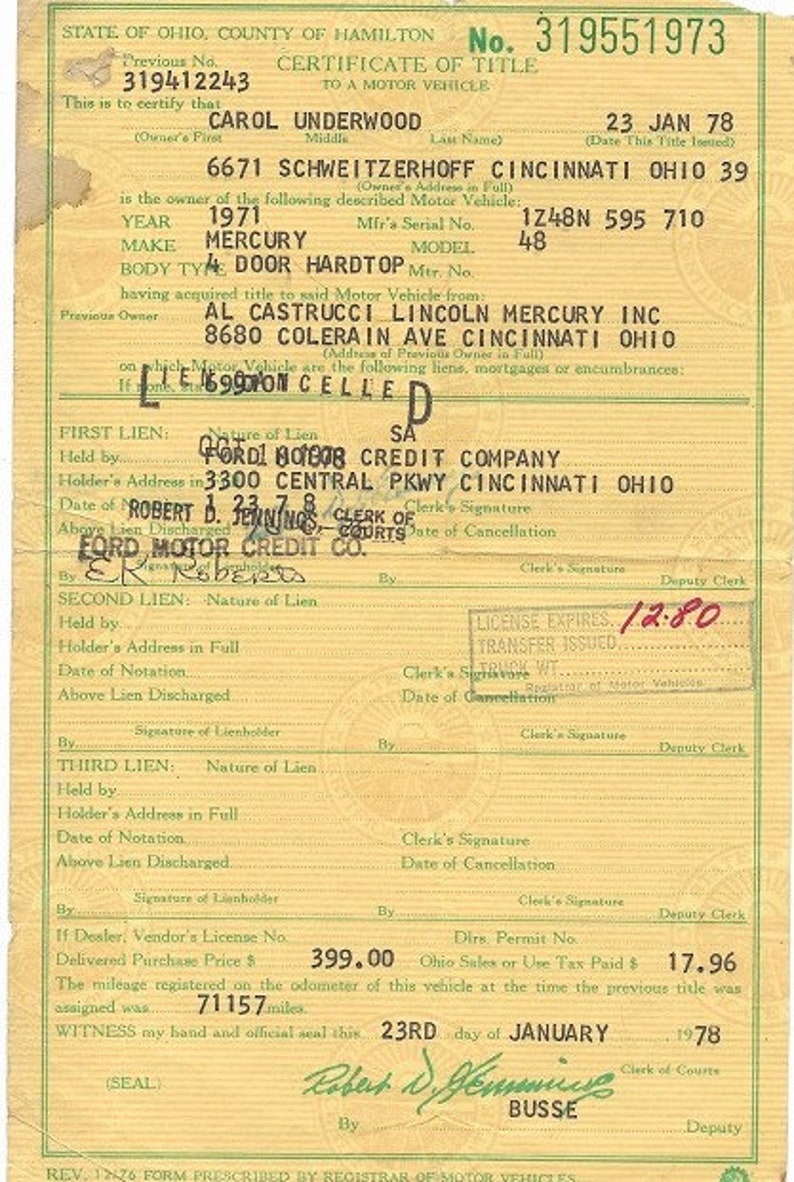 STATE OF OHIO, COUNTY OF HAMILTON No. 319551973
Previous No. CERTIFICATE OF TITLE
319412243 TO A MOTOR VEHICLE
This is to certify that
CAROL UNDERWOOD 23 JAN 78
(Owner's First Middle Last Name) (Date This Title Issued)
6671 SCHWEITZERHOFF CINCINNATI OHIO 39
(Owner's Address in Full)
is the owner of the following described Motor Vehicle:
YEAR 1971 Mfr's Serial No. 1Z48N 595 710
MAKE MERCURY MODEL 48
BODY TYPE 4 DOOR HARDTOP Mtr. No.
having acquired title to said Motor Vehicle from:
Previous Owner AL CASTRUCCI LINCOLN MERCURY INC
8680 COLERAIN AVE CINCINNATI OHIO
(Address of Previous Owner in Full)
on which Motor Vehicle are the following liens, mortgages or encumbrances:
If none, LIEN CANCELLED
FIRST LIEN: Nature of Lien SA
Held by FORD MOTOR CREDIT COMPANY
OCT 18 1978
Holder's Address in 3300 CENTRAL PKWY CINCINNATI OHIO
Date of 1 23 78 Clerk's Signature
ROBERT D. JENNINGS, CLERK OF COURTS
Above Lien Discharged Date of Cancellation
FORD MOTOR CREDIT CO.
Signature of Lienholder Clerk's Signature
By EK Roberts By Deputy Clerk
SECOND LIEN: Nature of Lien
LICENSE EXPIRES 12.80
Held by
TRANSFER ISSUED
Holder's Address in Full
TRUCK WT.
Date of Notation Clerk's Signature
Registrar of Motor Vehicles
Above Lien Discharged Date of Cancellation
Signature of Lienholder Clerk's Signature
By By Deputy Clerk
THIRD LIEN: Nature of Lien
Held by
Holder's Address in Full
Date of Notation Clerk's Signature
Above Lien Discharged Date of Cancellation
Signature of Lienholder Clerk's Signature
By By Deputy Clerk
If Dealer, Vendor's License No. Dlrs. Permit No.
Delivered Purchase Price $ 399.00 Ohio Sales or Use Tax Paid $ 17.96
The mileage registered on the odometer of this vehicle at the time the previous title was
assigned was 71157 miles.
WITNESS my hand and official seal this 23RD day of JANUARY 1978
(SEAL) Robert D. Jennings Clerk of Courts
BUSSE
By Deputy
REV. 12/76 FORM PRESCRIBED BY REGISTRAR OF MOTOR VEHICLES